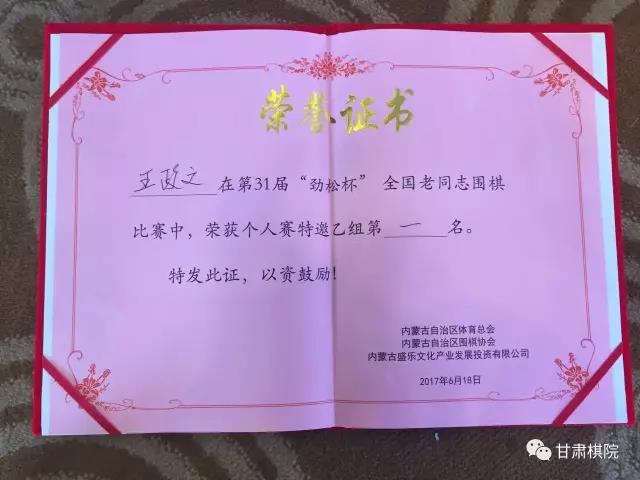 荣誉证书
王政文在第31届“劲松杯”全国老同志围棋
比赛中，荣获个人赛特邀乙组第一名。
特发此证，以资鼓励！
内蒙古自治区体育总会
内蒙古自治区围棋协会
内蒙古盛乐文化产业发展投资有限公司
2017年6月18日
甘肃棋院